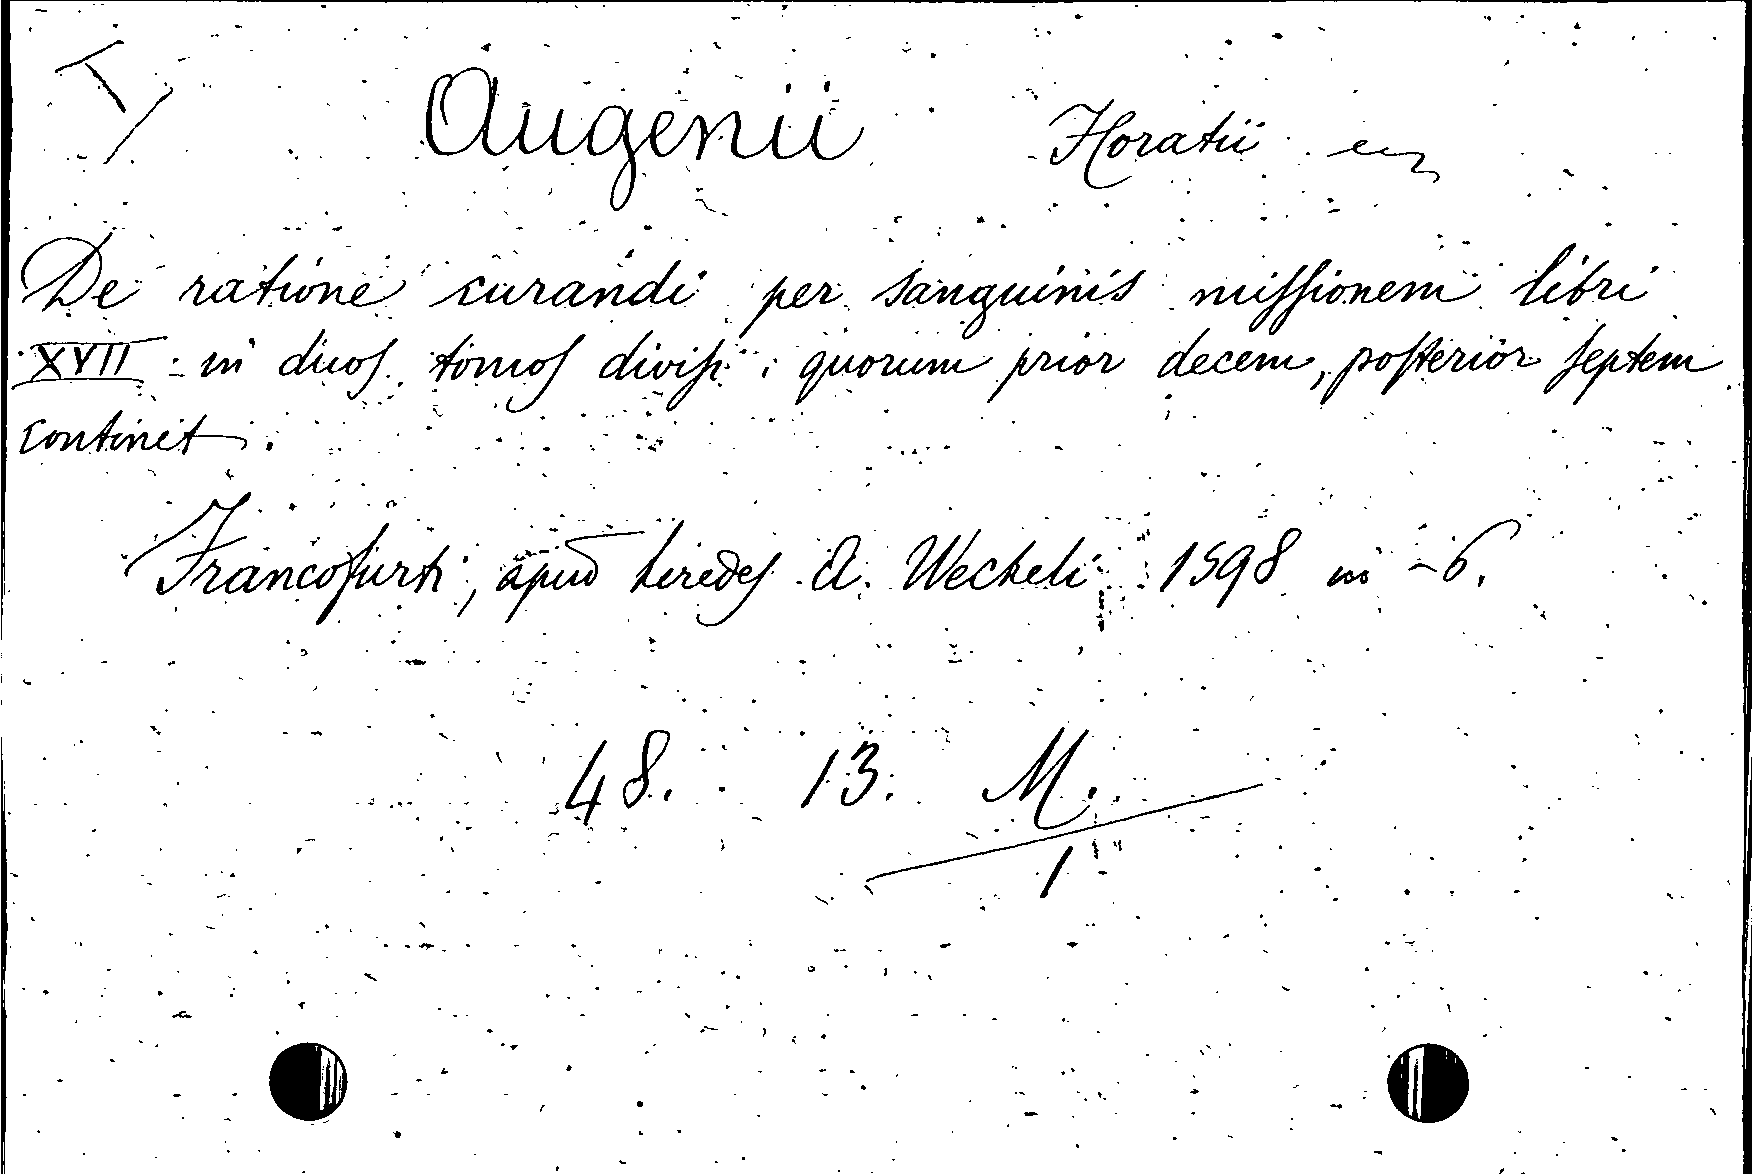 Augenii Horatii
De ratione curandi per sanguinis miſſionem libri
XVII in duoſ tomoſ diviſi; quorum prior decem, poſterior ſeptem
continet.
Francofurti, apud heredeſ A. Wecheli 1598 in -6.
48. 13. M.
1